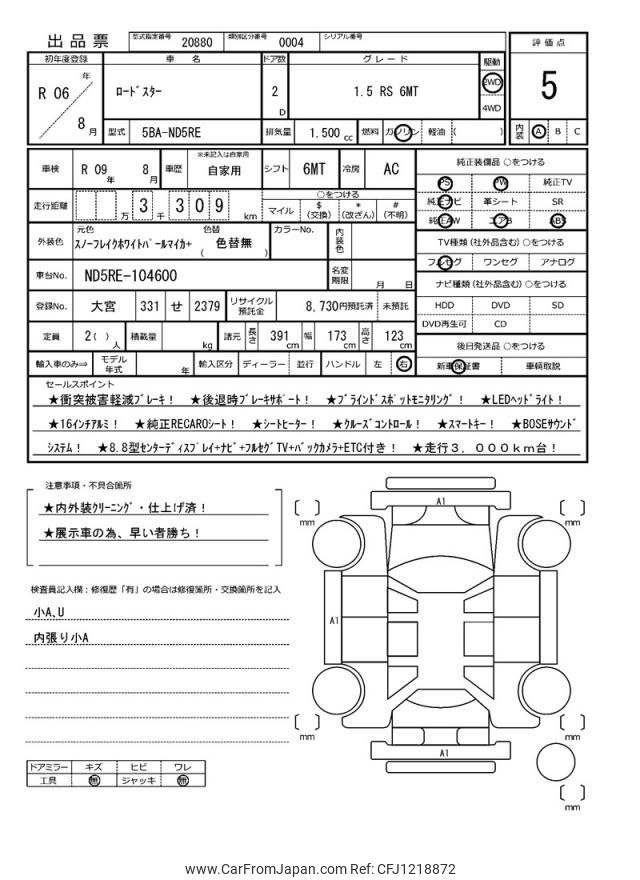 出品票 型式指定番号 20880 類別区分番号 0004 シリアル番号
初年度登録 車名 ドア数 グレード 駆動 評価点
R 06 年 8 月 ロードスター 2 D 1.5 RS 6MT 2WD 4WD 5
型式 5BA-ND5RE 排気量 1.500 cc 燃料 ガソリン 軽油 ( ) 内装 A B C
車検 R 09 年 8 月 車歴 ※未記入は自家用 自家用 シフト 6MT 冷房 AC
純正装備品 ○をつける
PS PW 純正TV
純正ナビ 革シート SR
純正AW エアB ABS
走行距離 万 3 千 3 0 9 km ○をつける マイル $ (交換) * (改ざん) # (不明)
TV種類 (社外品含む) ○をつける
フルセグ ワンセグ アナログ
外装色 元色 スノーフレイクホワイトパールマイカ+ 色替 ( 色替無 ) カラーNo. 内装色
車台No. ND5RE-104600 名変期限 月 日
ナビ種類 (社外品含む) ○をつける
HDD DVD SD
DVD再生可 CD
登録No. 大宮 331 せ 2379 リサイクル預託金 8,730円預託済 未預託
定員 2( ) 人 積載量 kg 諸元 長さ 391 cm 幅 173 cm 高さ 123 cm
後日発送品 ○をつける
新車保証書 車輌取説
輸入車のみ⇒ モデル年式 年 輸入区分 ディーラー 並行 ハンドル 左 右
セールスポイント
★衝突被害軽減ブレーキ! ★後退時ブレーキサポート! ★ブラインドスポットモニタリング! ★LEDヘッドライト!
★16インチアルミ! ★純正RECAROシート! ★シートヒーター! ★クルーズコントロール! ★スマートキー! ★BOSEサウンド
システム! ★8.8型センターディスプレイ+ナビ+フルセグTV+バックカメラ+ETC付き! ★走行3,000km台!
注意事項・不具合箇所
★内外装クリーニング・仕上げ済!
★展示車の為、早い者勝ち!
検査員記入欄:修復歴「有」の場合は修復箇所・交換箇所を記入
小A,U
内張り小A
ドアミラー キズ ヒビ ワレ
工具 無 ジャッキ 無
A1
mm mm
A1
mm mm
A1
mm
www.CarFromJapan.com Ref: CFJ1218872